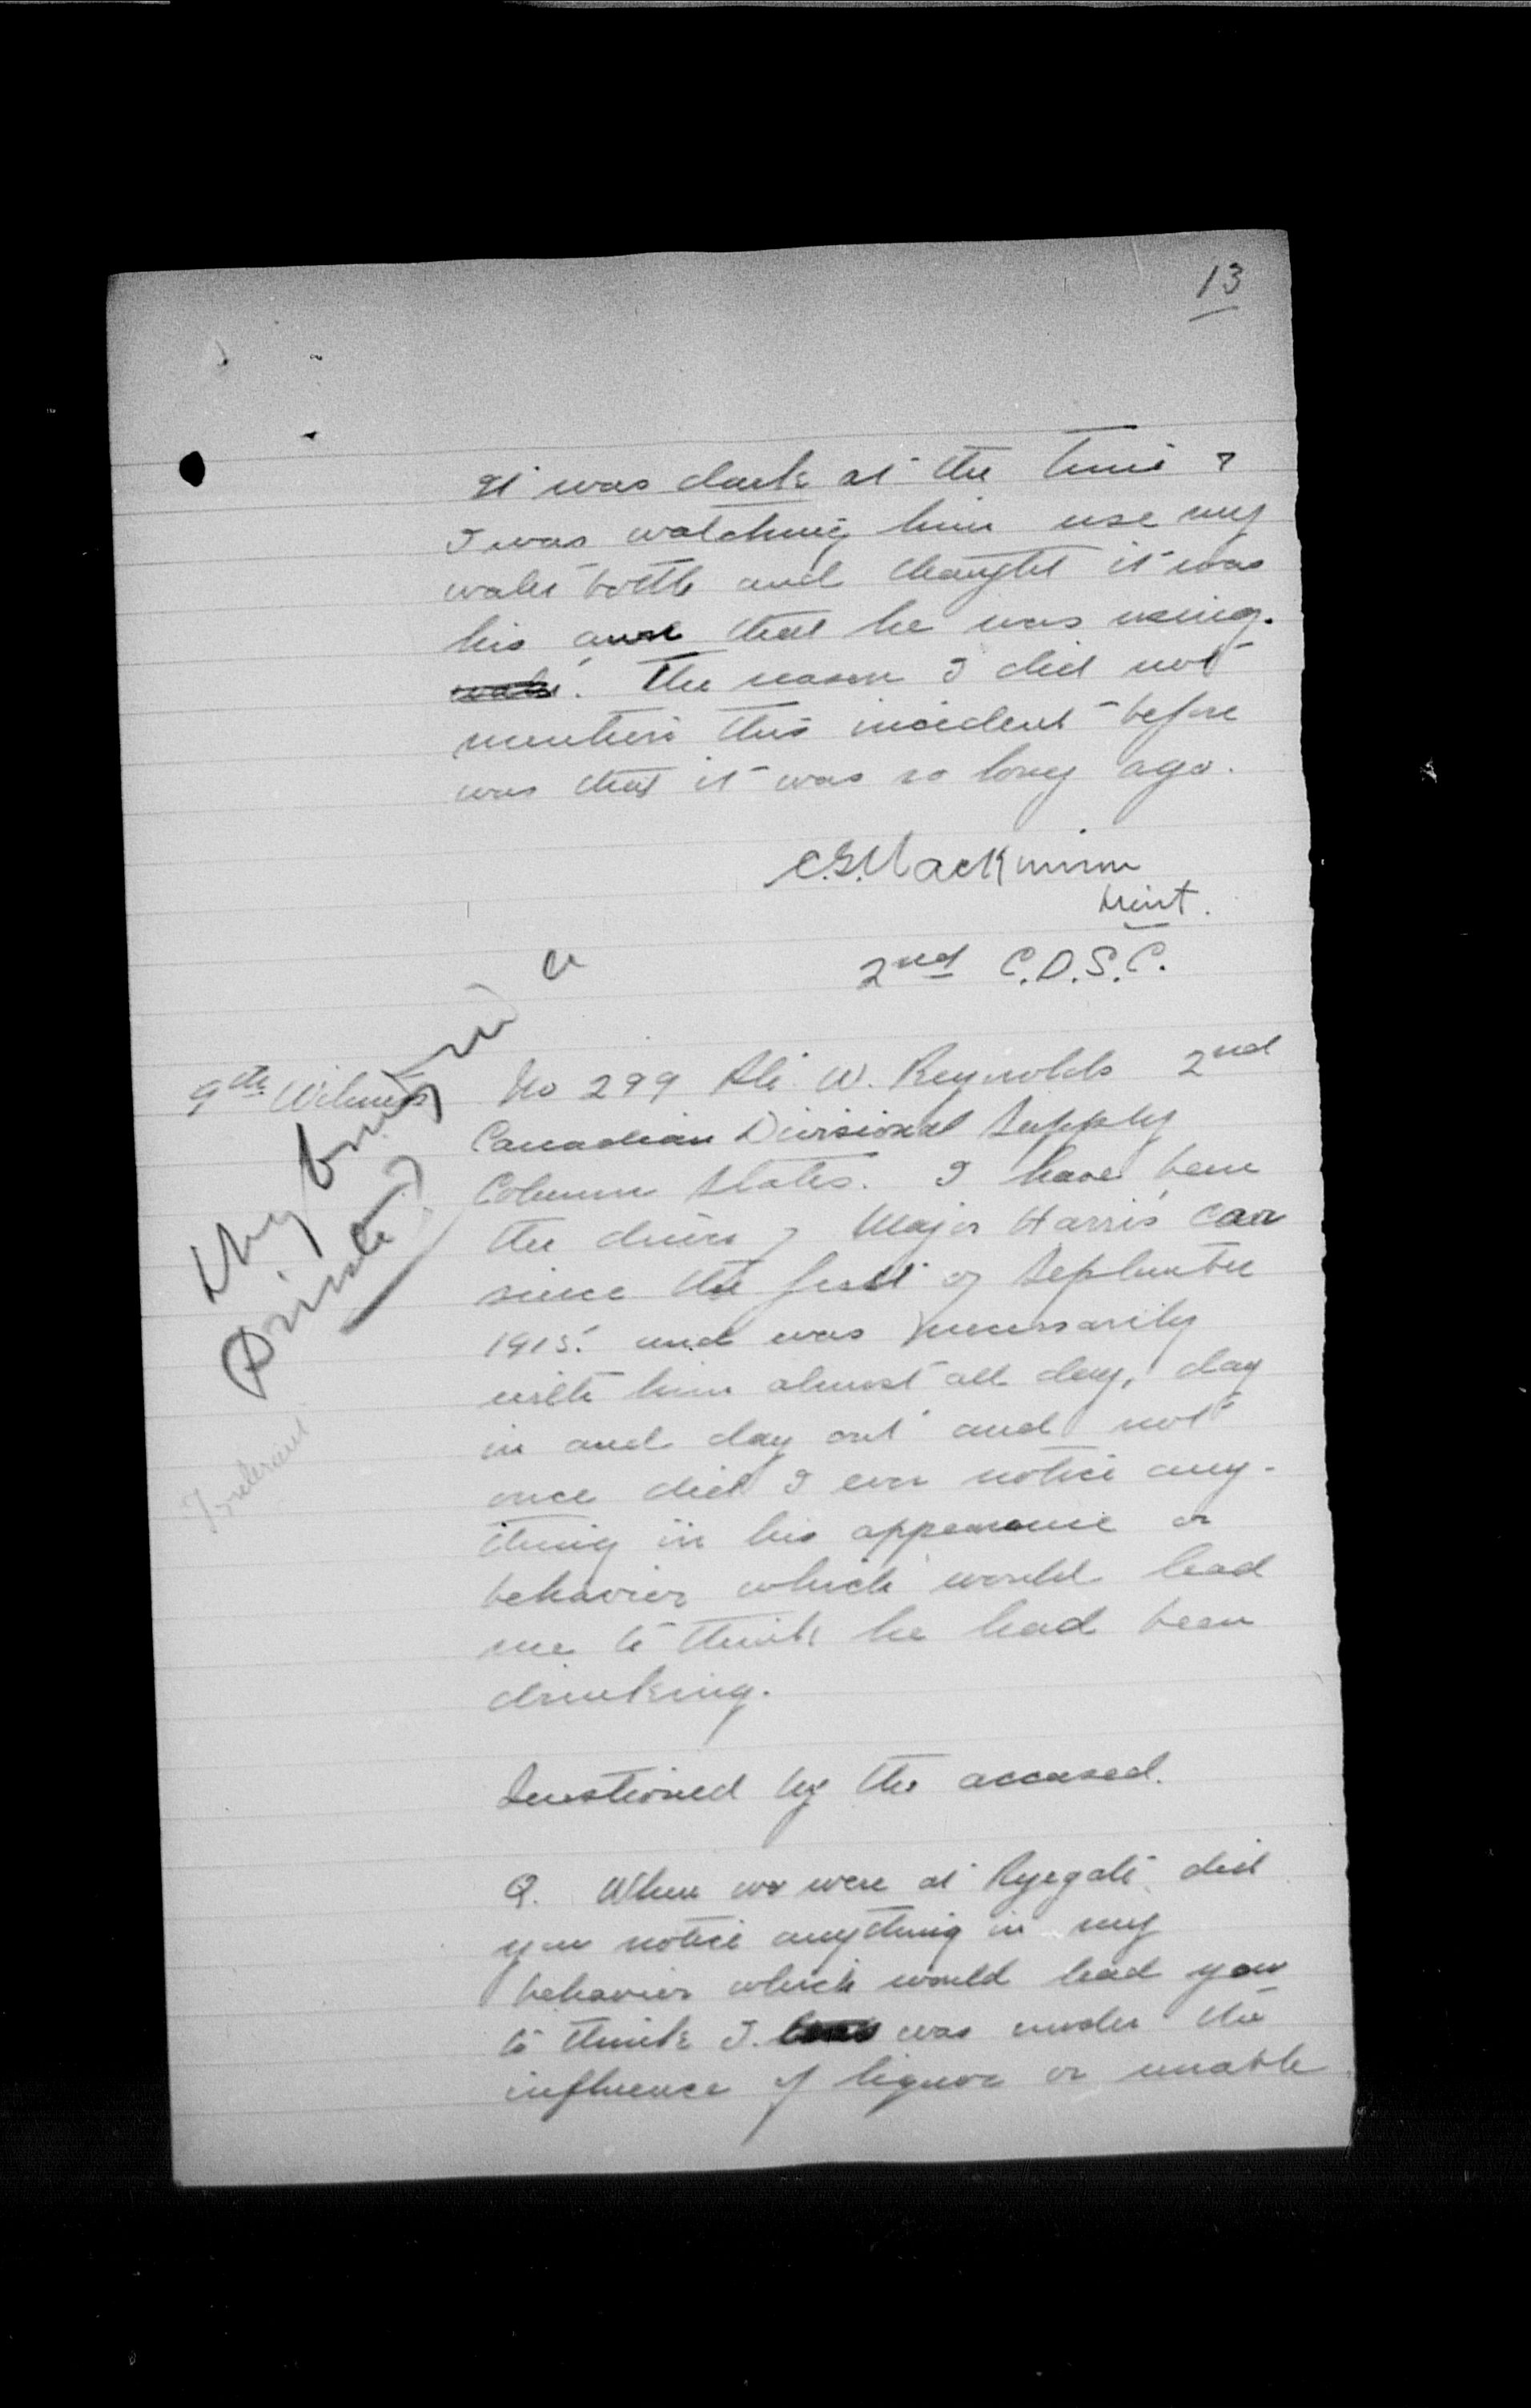 13
It was dark at the time &
I was watching him use my
water bottle and thought it was
his own that he was using.
water. The reason I did not
mention this incident before
was that it was so long ago.
C.G. Mackinnon
Lieut.
2nd C.D.S.C.
9th Witness
No 299 Pte. W. Reynolds 2nd
Canadian Divisional Supply
Column States. I have been
the driver of Major Harris' car
since the first of September
1915. and was necessarily
with him almost all day, day
in and day out and not
once did I ever notice any-
thing in his appearance or
behavior which would lead
me to think he had been
drinking.
Why bring in a
private?
Irrelevant
Questioned by the accused.
Q. When we were at Ryegate did
you notice anything in my
behavior which would lead you
to think I was under the
influence of liquor or unable